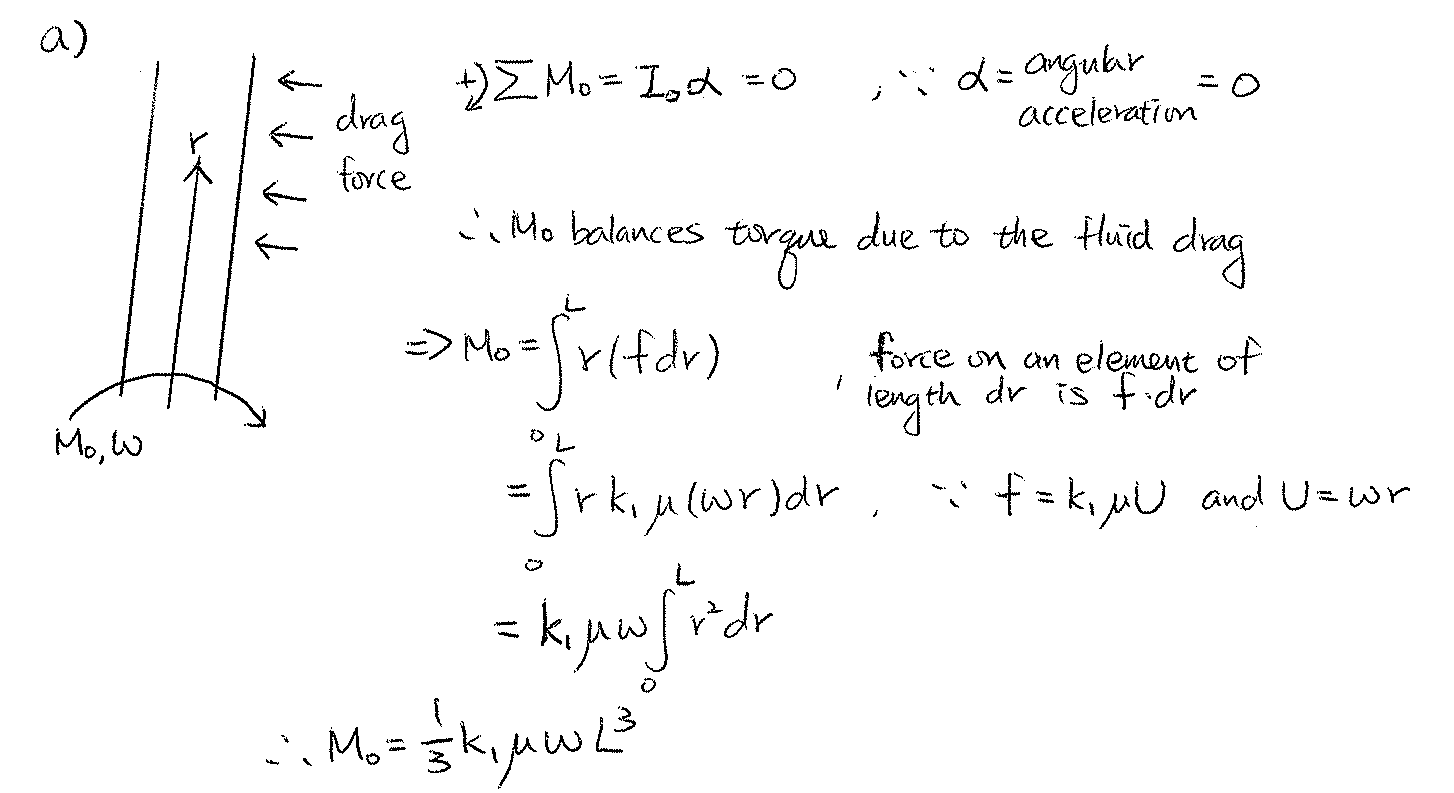 a)
+) ΣM₀ = I₀α = 0 , ∵ α = angular acceleration = 0
r
drag
force
∴ M₀ balances torque due to the fluid drag
⇒ M₀ = ∫₀ᴸ r(f dr) , force on an element of
length dr is f·dr
M₀, ω
= ∫₀ᴸ r k₁ μ(ωr)dr , ∵ f = k₁μU and U = ωr
= k₁μω ∫₀ᴸ r² dr
∴ M₀ = 1/3 k₁μωL³